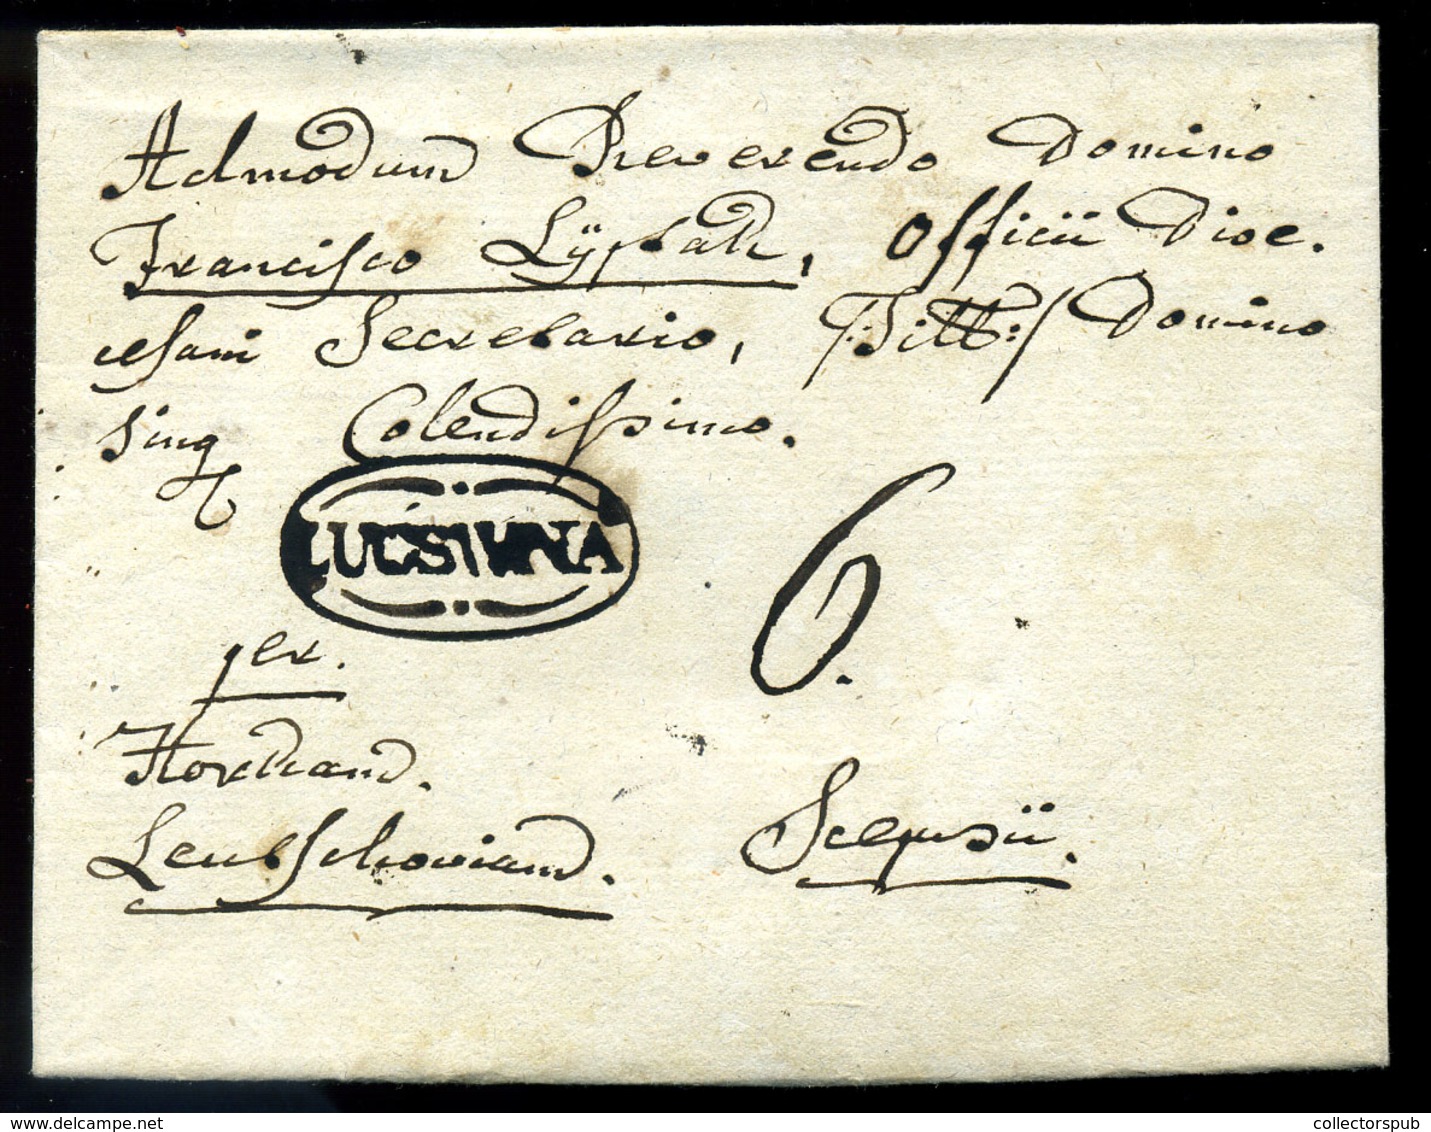 Admodum Reverendo Domino
Francisco Lÿptak, Officii Dioe.
cesani Secretario, /:Titt:/ Domino
sinq Colendissimo.
LUCSIVNA
6.
per.
Horkand.
Leutschoviand.
Scepusii.
collectorspub